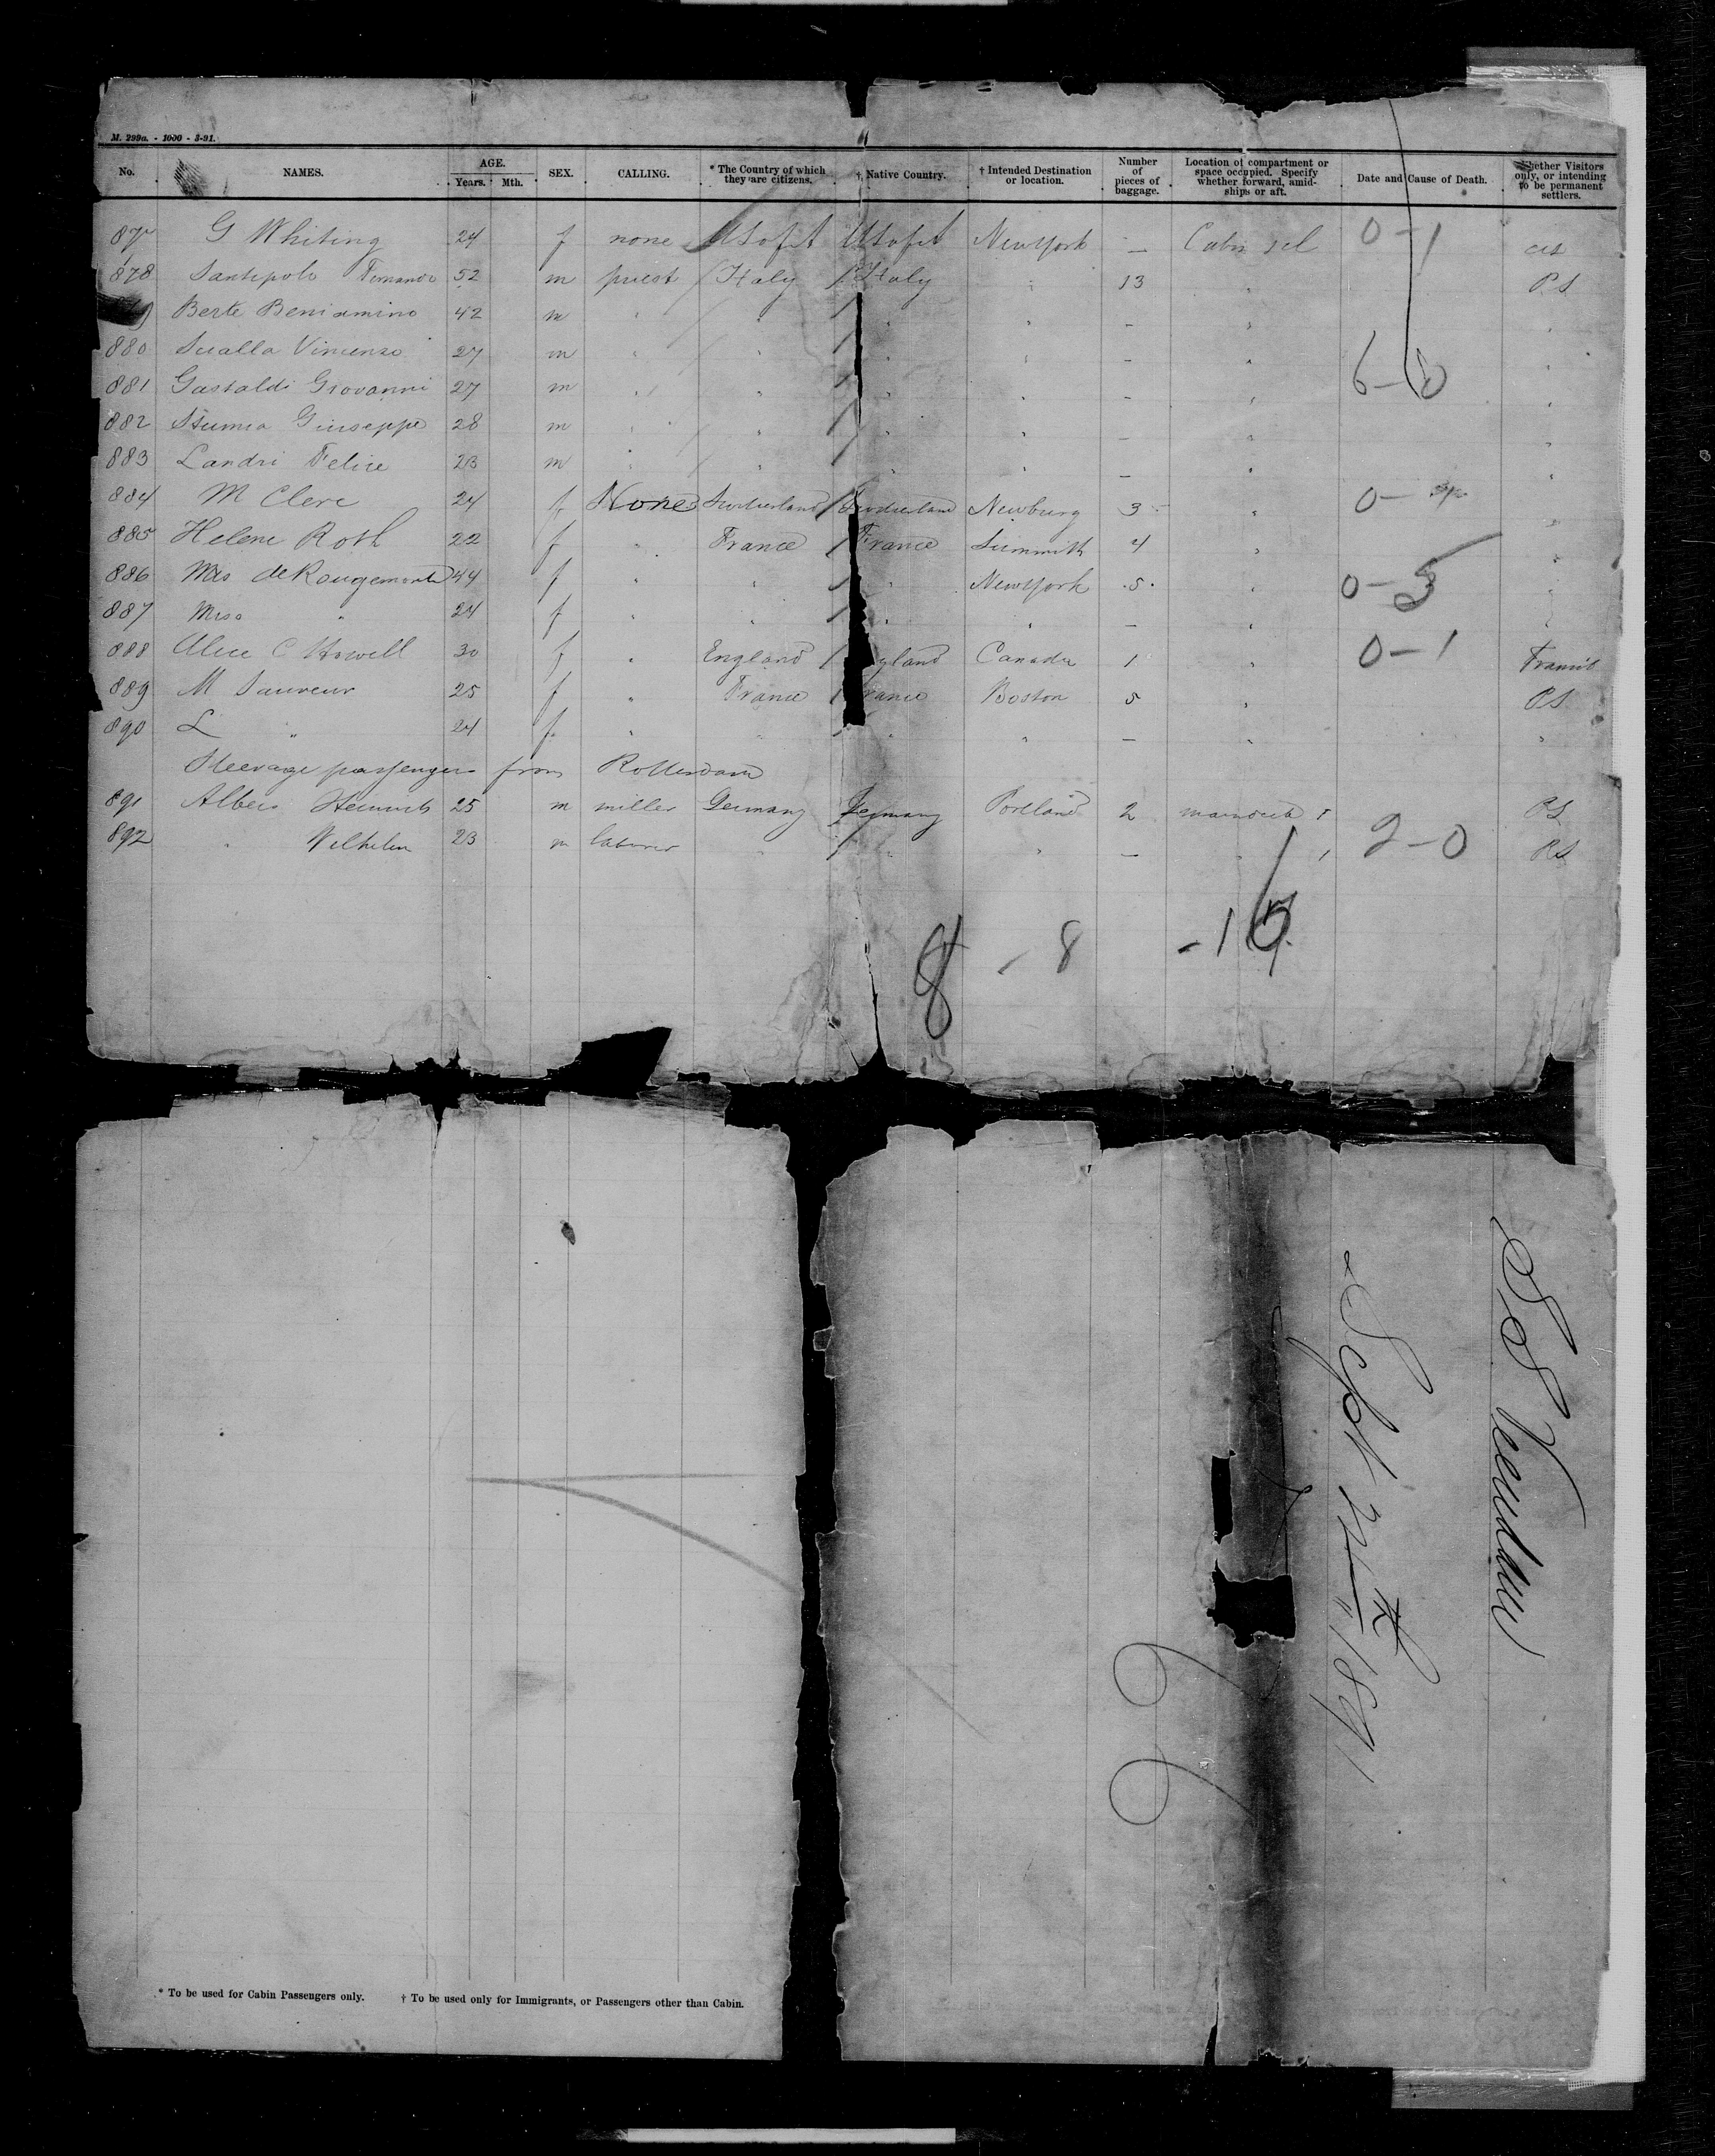 M. 299a. - 1000 - 3-91.
No. NAMES. AGE. Years. Mth. SEX. CALLING. * The Country of which they are citizens. † Native Country. † Intended Destination or location. Number of pieces of baggage. Location of compartment or space occupied. Specify whether forward, amidships or aft. Date and Cause of Death. Whether Visitors only, or intending to be permanent settlers.
877 G Whiting 24 f none U S of A U S of A New York — Cabin 0-1
878 Fernando 52 m priest Italy Italy " 13 " PS
Berte Beniamino 42 m " " " " — " "
880 Scalla Vincenzo 27 m " " " " — " "
881 Gastaldi Giovanni 27 m " " " " — " 6-0 "
882 Giuseppe 28 m " " " " — " "
883 Landri Felice 23 m " " " " — " "
884 M Clerc 24 f None Switzerland Switzerland Newburg 3 " 0- "
885 Helene Roth 22 f " France France Summith 4 " "
886 Mrs de Rougemont 44 f " " " New York 5 " 0-3 "
887 Miss " 24 f " " " " — " "
888 Alice C Howell 30 f " England gland Canada 1 " 0-1 Transit
889 M Sauveur 25 f " France rance Boston 5 " PS
890 L " 24 f " " " " — " "
Steerage passengers from Rotterdam
891 Albers Heinrich 25 m miller Germany Germany Portland 2 PS
892 " Wilhelm 23 m laborer " " " — " 2-0 PS
8 - 8 - 16
SS Veendam
Sept 1891
* To be used for Cabin Passengers only. † To be used only for Immigrants, or Passengers other than Cabin.